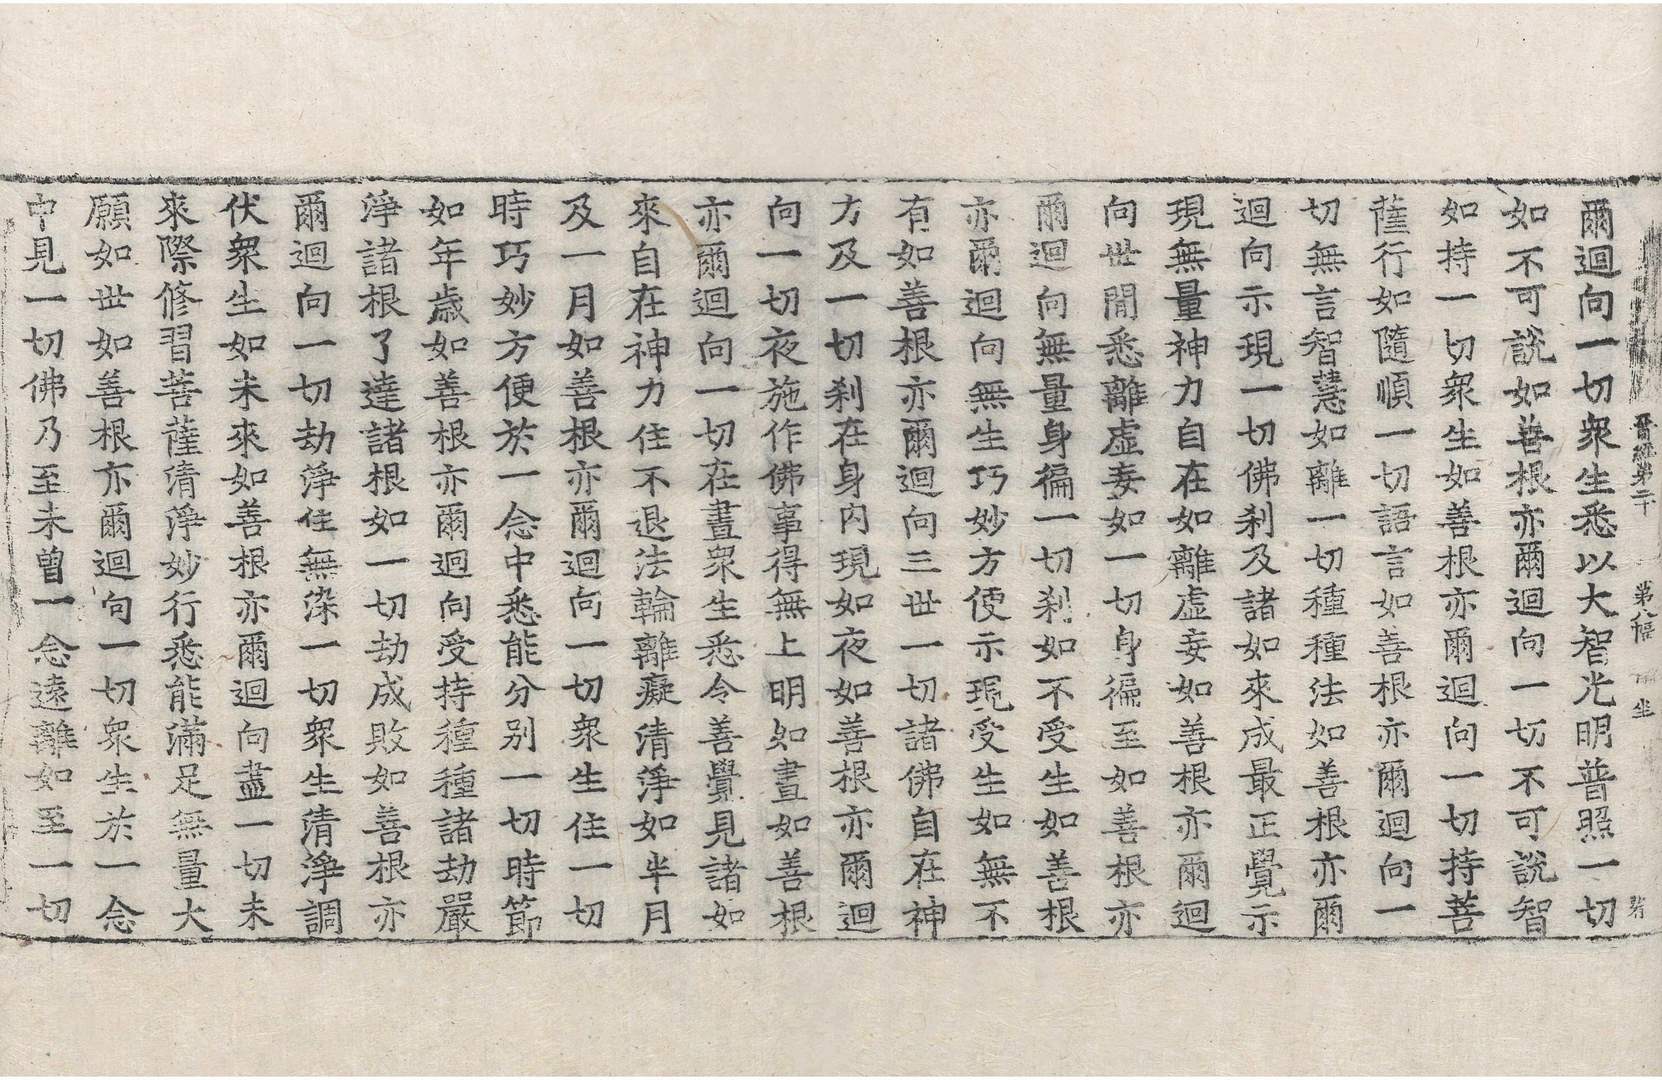 晉經第二十 第八幅 坐
爾迴向一切衆生悉以大智光明普照一切
如不可說如善根亦爾迴向一切不可說智
如持一切衆生如善根亦爾迴向一切持菩
薩行如隨順一切語言如善根亦爾迴向一
切無言智慧如離一切種種法如善根亦爾
迴向示現一切佛刹及諸如來成最正覺示
現無量神力自在如離虛妄如善根亦爾迴
向世間悉離虛妄如一切身徧至如善根亦
爾迴向無量身徧一切刹如不受生如善根
亦爾迴向無生巧妙方便示現受生如無不
有如善根亦爾迴向三世一切諸佛自在神
力及一切刹在身內現如夜如善根亦爾迴
向一切夜施作佛事得無上明如晝如善根
亦爾迴向一切在晝衆生悉令善覺見諸如
來自在神力住不退法輪離癡清淨如半月
及一月如善根亦爾迴向一切衆生住一切
時巧妙方便於一念中悉能分别一切時節
如年歲如善根亦爾迴向受持種種諸劫嚴
淨諸根了達諸根如一切劫成敗如善根亦
爾迴向一切劫淨住無染一切衆生清淨調
伏衆生如未來如善根亦爾迴向盡一切未
來際修習菩薩清淨妙行悉能滿足無量大
願如世如善根亦爾迴向一切衆生於一念
中見一切佛乃至未曾一念遠離如至一切